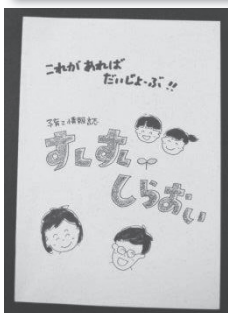 これがあれば
だいじょーぶ!!
子育て情報誌
すくすく
しらおい